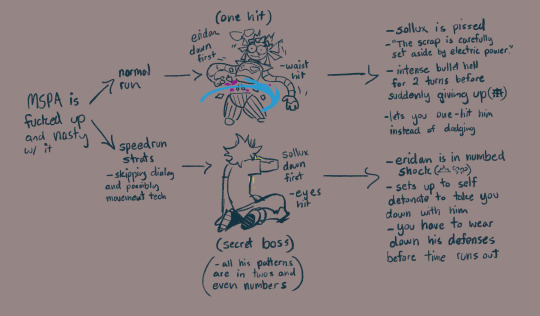 (one hit)
eridan
down
first
-waist
hit
normal
run
MSPA is
fucked up
and nasty
w/ it
speedrun
strats
-skipping dialog
and possibly
movement tech
sollux
down
first
-eyes
hit
(secret boss)
(-all his patterns
are in twos and
even numbers)
-sollux is pissed
-"The scrap is carefully
set aside by electric power"
-intense bullet hell
for 2 turns before
suddenly giving up
-lets you one-hit him
instead of dodging
-eridan is in numbed
shock
-sets up to self
detonate to take you
down with him
-you have to wear
down his defenses
before time runs out